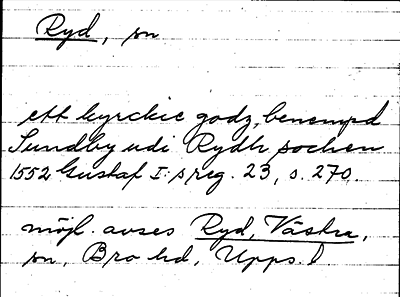 Ryd, sn
ett kyrckie godz, benempd
Sundby udi Rydh sochen
1552 Gustaf I:s reg. 23, s. 270.
möjl. avses Ryd, Västra,
sn, Bro hd, Upps. l